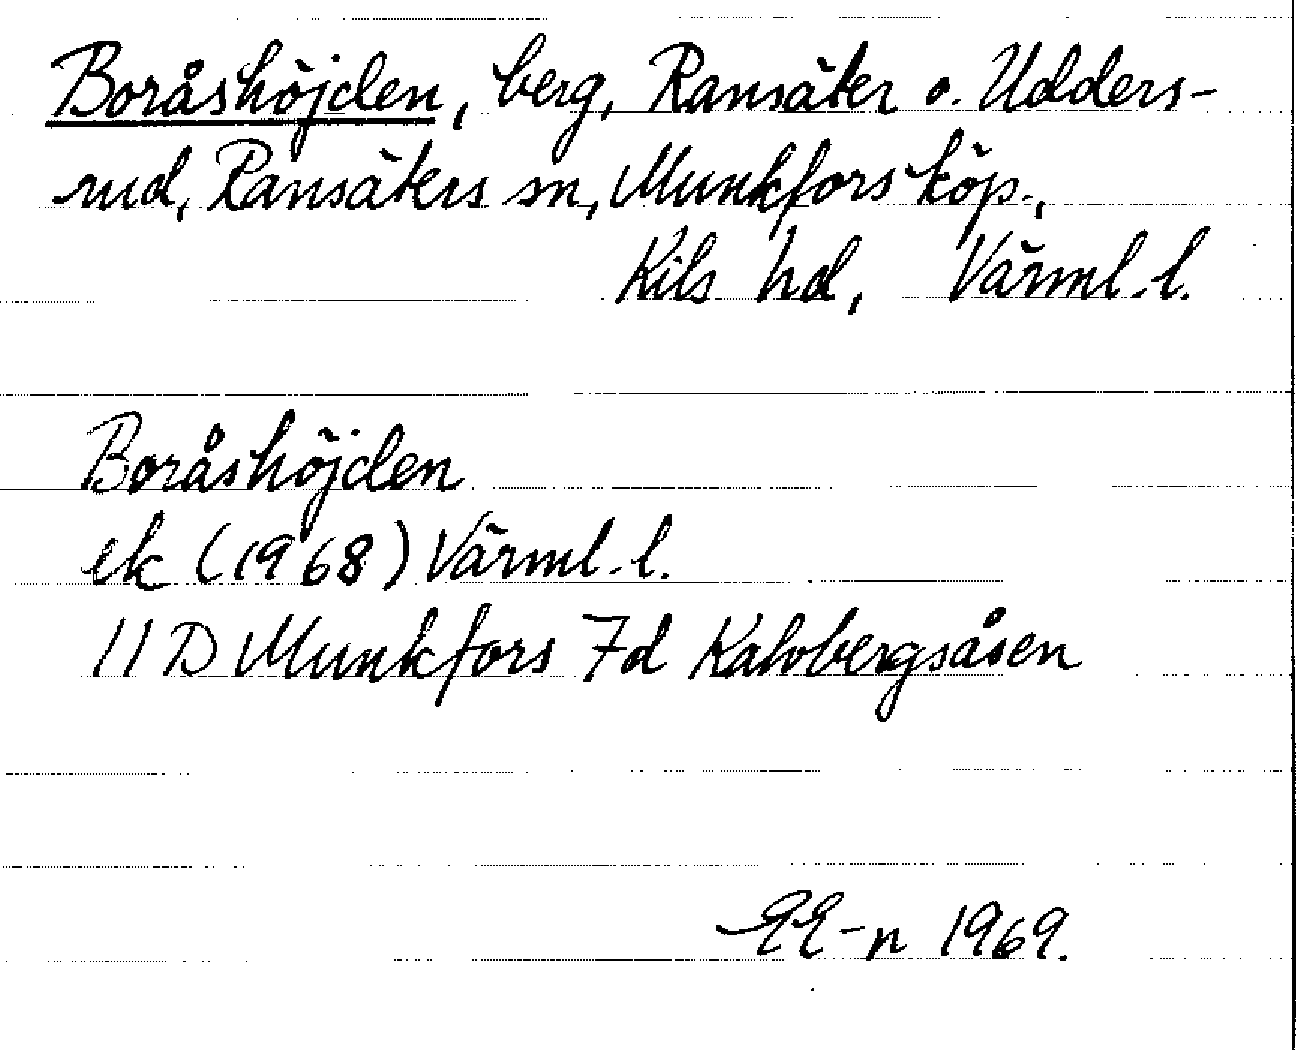 Boråshöjden, berg, Ransäter o. Udders-
rud, Ransäters sn, Munkfors köp.,
Kils hd, Värml. l.
Boråshöjden
ek (1968) Värml. l.
11 D Munkfors 7d Kalvbergsåsen
EE-n 1969.